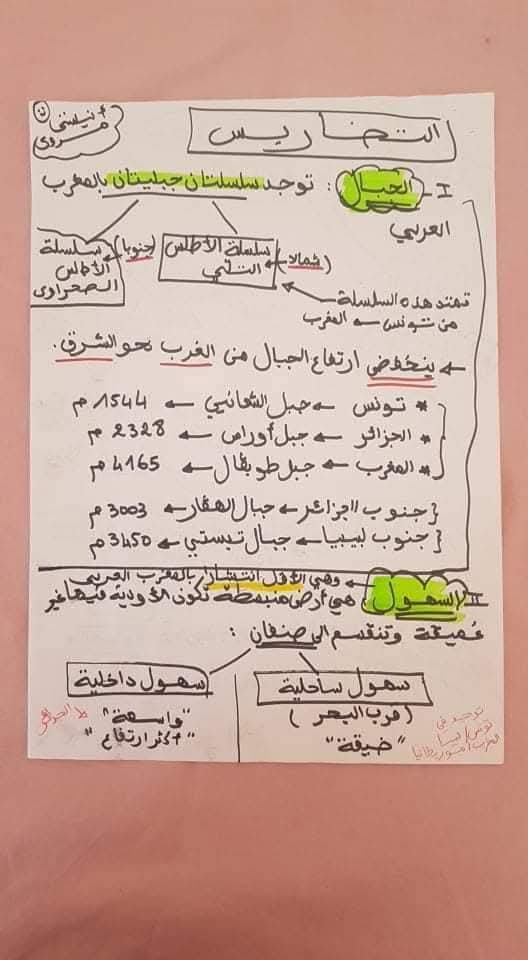 التضاريس
I- الجبال : توجد سلسلتان جبليتان بالمغرب
العربي
سلسلة الأطلس التلي (شمالا)
سلسلة الأطلس الصحراوي (جنوبا)
تمتد هذه السلسلة
من تونس ← المغرب
← ينخفض ارتفاع الجبال من الغرب نحو الشرق.
* تونس ← جبل الشعانبي ← 1544 م
* الجزائر ← جبل أوراس ← 2328 م
* المغرب ← جبل طوبقال ← 4165 م
{ جنوب الجزائر ← جبال الهقار ← 3003 م
{ جنوب ليبيا ← جبال تيبستي ← 3450 م
← وهي الأقل انتشارا بالمغرب العربي
II- السهول : هي أرض منبسطة تكون الأودية فيها غير
عميقة وتنقسم الى صنفان :
سهول ساحلية
(قرب البحر)
"ضيقة"
توجد في
تونس / ليبيا
سهول داخلية
"واسعة"
"أكثر ارتفاع"